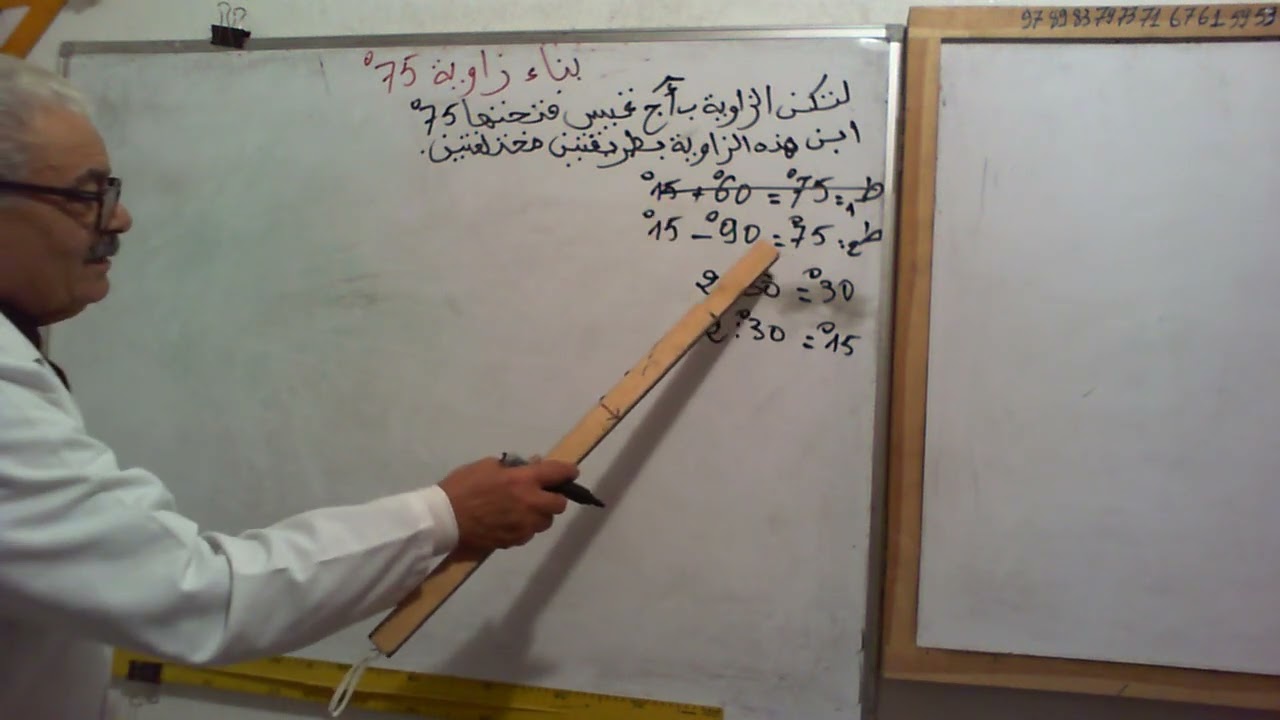 بناء زاوية 75°
لتكن الزاوية ب أ ج نقيس فتحتها 75°
ابن هذه الزاوية بطريقتين مختلفتين.
ط1: 75° = 60° + 15°
ط2: 75° = 90° - 15°
30° = : 2
15° = 30° : 2
97 89 83 79 73 71 67 61 59 53